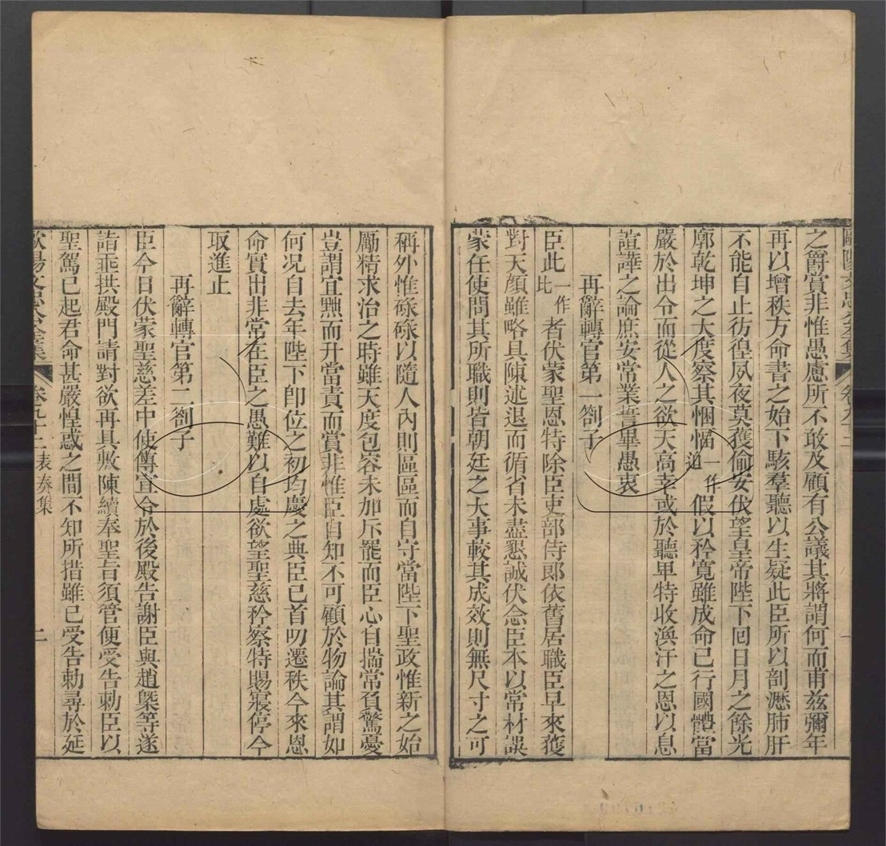 歐陽文忠公全集 卷九十二 一
之爵賞非惟愚慮所不敢及顧有公議其將謂何而甫兹彌年
再以增秩方命書之始下駭羣聽以生疑此臣所以剖瀝肺肝
不能自止彷徨夙夜莫獲偷安伏望皇帝陛下回日月之餘光
廓乾坤之大度察其悃愊一作逎假以矜寬雖成命已行國體當
嚴於出令而從人之欲天高幸或於聽卑特收渙汗之恩以息
諠譁之論庶安常業誓畢愚衷
再辭轉官第一劄子
臣此一作比者伏蒙聖恩特除臣吏部侍郎依舊居職臣早來獲
對天顏雖略具陳述退而循省未盡懇誠伏念臣本以常材誤
蒙任使問其所職則皆朝廷之大事較其成效則無尺寸之可
稱外惟碌碌以隨人內則區區而自守當陛下聖政惟新之始
勵精求治之時雖天度包容未加斥罷而臣心自揣常負驚憂
豈謂宜黜而升當責而賞非惟臣自知不可顧於物論其謂如
何况自去年陛下卽位之初均慶之典臣已首叨遷秩今來恩
命實出非常在臣之愚難以自處欲望聖慈矜察特賜寢停今
取進止
再辭轉官第二劄子
臣今日伏蒙聖慈差中使傳宣令於後殿告謝臣與趙槩等遂
詣垂拱殿門請對欲再具敷陳續奉聖旨須管便受告勅臣以
聖駕已起君命甚嚴惶惑之間不知所措雖已受告勅尋於延
歐陽文忠公全集 卷九十二 表奏集 二